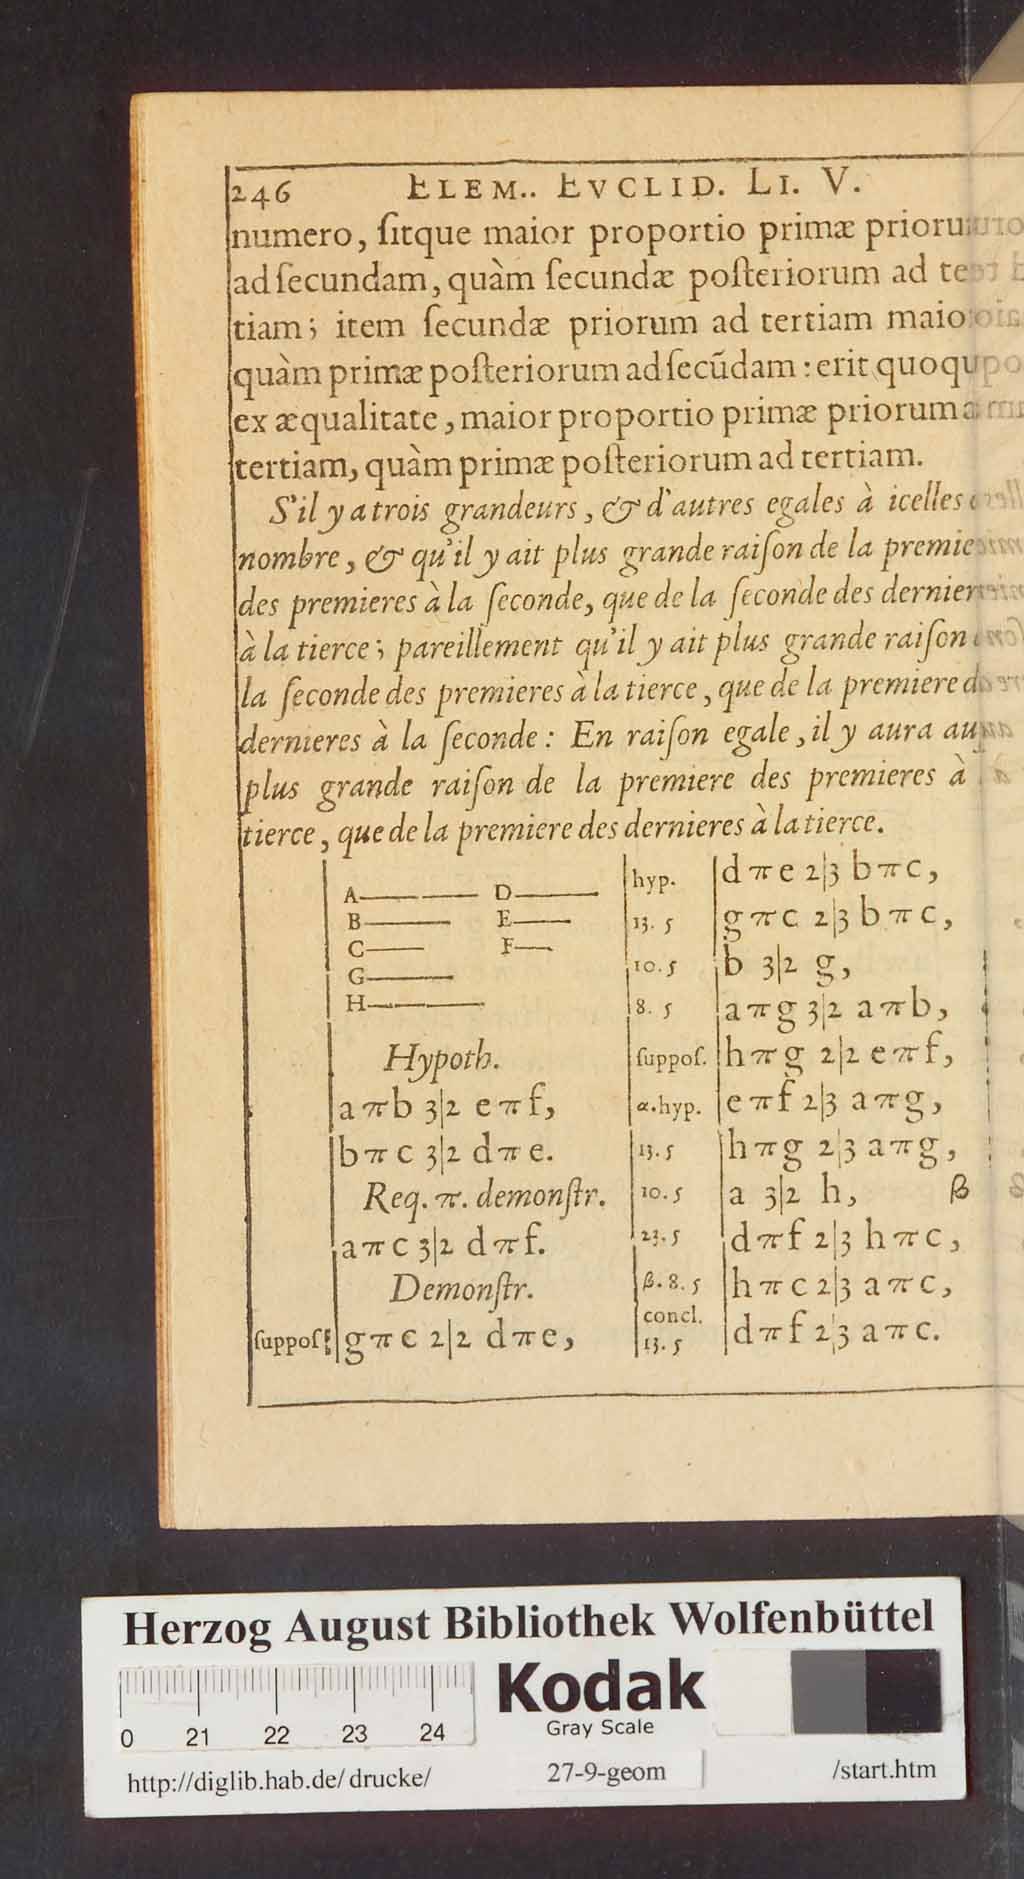 246 ELEM.. EVCLID. LI. V.
numero, ſitque maior proportio primæ
ad ſecundam, quàm ſecundæ poſteriorum ad
tiam; item ſecundæ priorum ad tertiam
quàm primæ poſteriorum ad ſecũdam: erit
ex æqualitate, maior proportio primæ priorum
tertiam, quàm primæ poſteriorum ad tertiam.
S'il y a trois grandeurs, & d'autres egales à icelles
nombre, & qu'il y ait plus grande raiſon de la
des premieres à la ſeconde, que de la ſeconde des
à la tierce; pareillement qu'il y ait plus grande raiſon
la ſeconde des premieres à la tierce, que de la premiere
dernieres à la ſeconde: En raiſon egale, il y aura
plus grande raiſon de la premiere des premieres à
tierce, que de la premiere des dernieres à la tierce.
A D
B E
C F
G
H
Hypoth.
aπb 3|2 eπf,
bπc 3|2 dπe.
Req. π. demonſtr.
aπc 3|2 dπf.
Demonſtr.
ſuppoſ: gπc 2|2 dπe,
hyp. dπe 2|3 bπc,
13. 5 gπc 2|3 bπc,
10. 5 b 3|2 g,
8. 5 aπg 3|2 aπb,
ſuppoſ. hπg 2|2 eπf,
α.hyp. eπf 2|3 aπg,
13. 5 hπg 2|3 aπg,
10. 5 a 3|2 h, β
23. 5 dπf 2|3 hπc,
β. 8. 5 hπc 2|3 aπc,
concl.
13. 5 dπf 2|3 aπc.
Herzog August Bibliothek Wolfenbüttel
Kodak
Gray Scale
0 21 22 23 24
http://diglib.hab.de/drucke/ 27-9-geom /start.htm